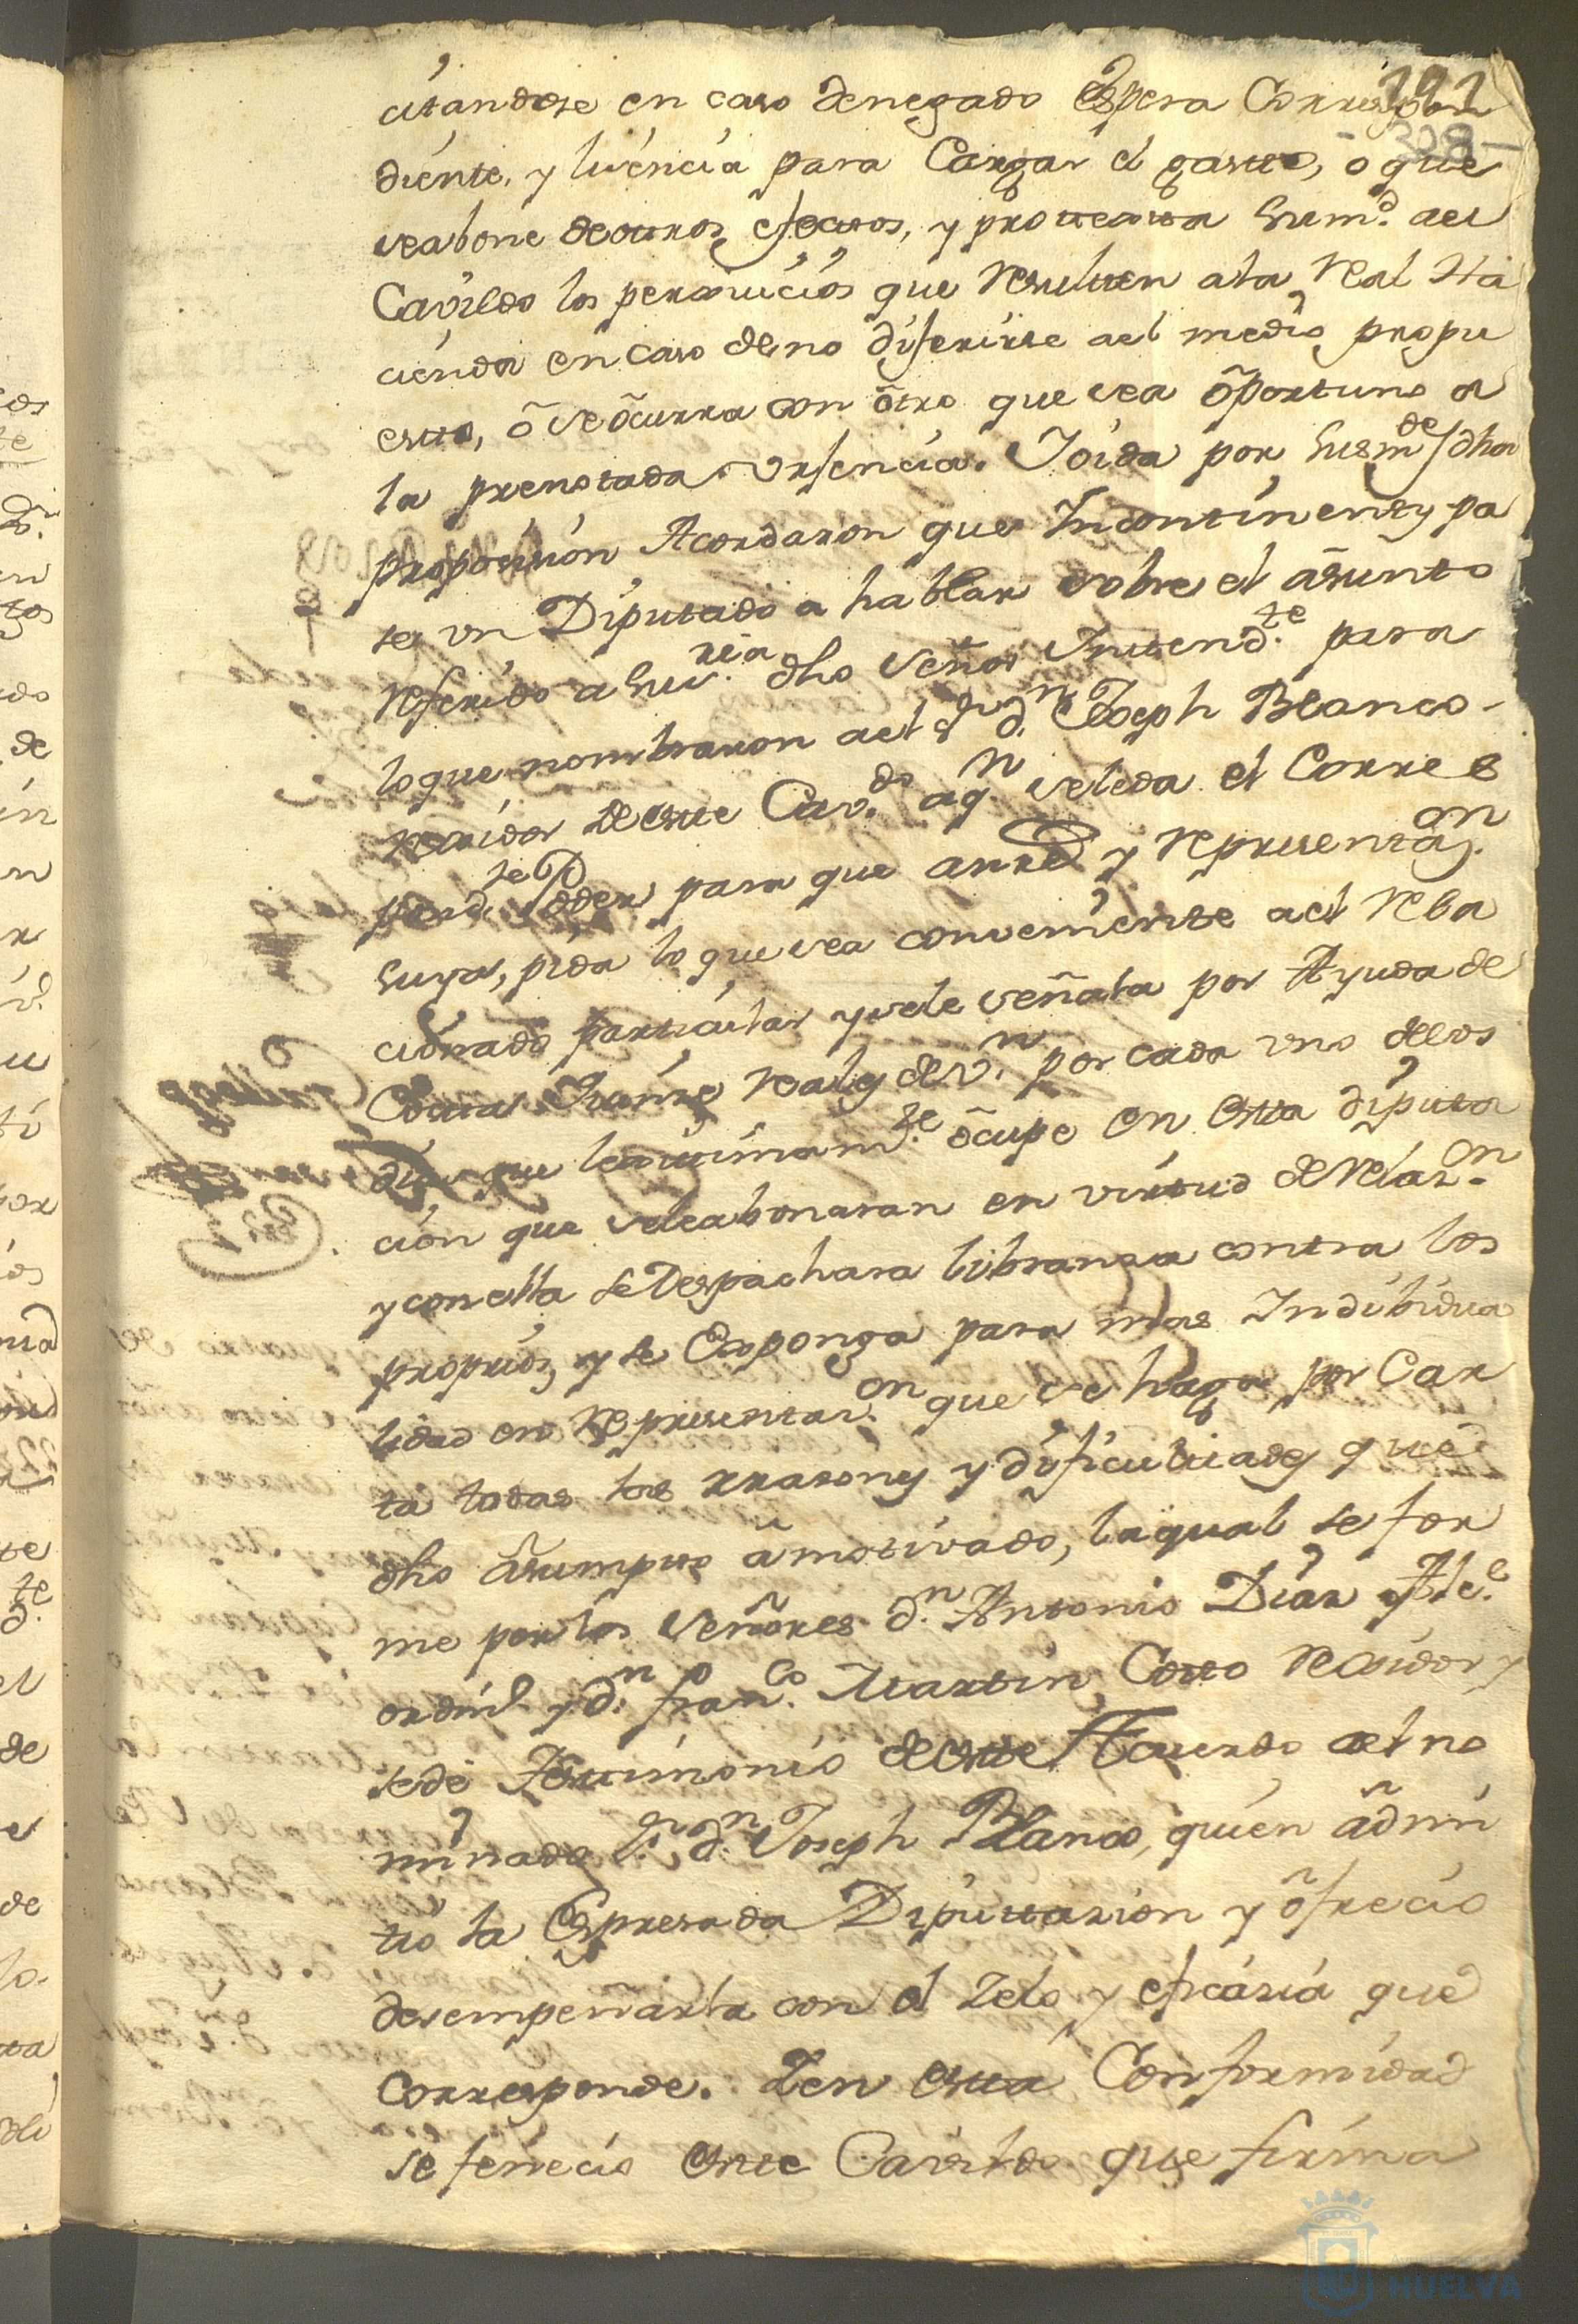 292
- 328 -
citandose en caso denegado Espera Correspon
diente, y licencia para Cargar el gasto, o que
se abone de otros efectos, y protextta Sumd. ael
Cavildo los perxuicios que Resulten ala Real Ha
cienda en caso de no diferirse ael medio propu
esto, õ se õcurra con õtro que sea õportuno a
la prenotada Urjencia. Yoida por Susmdes dha
proposision Acordaron que Incontinenty pa
se un Diputado a hablar sobre el asunto
referido a Su sria. dho señor Intendte. para
loque nombraron ael Sr. Dn. Joseph Blanco
rexidor de este Cavdo. aqn. sele da el Corres
pondte. Poder para que antte y representason.
suya, pida lo que sea conveniente ael Rela
cionado particular y se le señala por Ayuda de
Costa Quinze Reales de vn. por cada uno de los
dias que lexitimamte. õcupe en esta diputa
cion que sele abonaran en virtud de Relazon.
y con ella se Despachara libranza contra los
propios, y se Exponga para mas Indibidua
lidad en Representazon. que se haga por Car
ta todas las rrazones y dificultades que
dho asumpto ã motivado, laqual se for
me por los señores Dn. Antonio Diaz Alce.
ordino. y Dn. Franco. Martin Cotto Rexidor y
se dé Testimonio de este Acuerdo ael no
minado Sr. Dn. Joseph Blanco, quien ãdmi
tio la Espresada Diputtazion y õfrecio
desempeñarla con el Zelo y eficasia que
corresponde. Y en esta Conformidad
se fenecio este Cavildo que firma
HUELVA